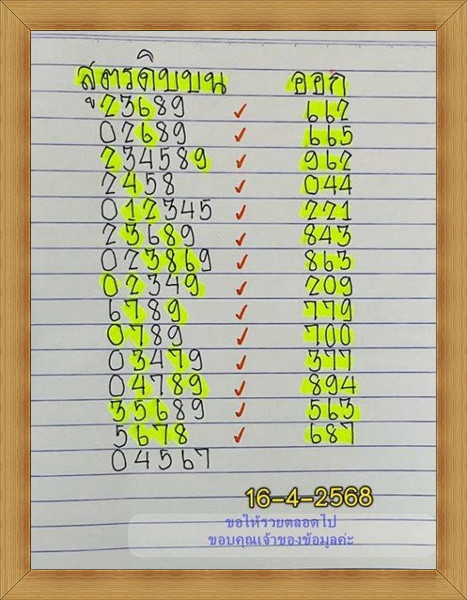 สูตรดิบบน ออก
23689 ✓ 662
02689 ✓ 665
234589 ✓ 962
2458 ✓ 044
012345 ✓ 221
23689 ✓ 843
023869 ✓ 863
02349 ✓ 209
6789 ✓ 779
0789 ✓ 700
03479 ✓ 377
04789 ✓ 894
35689 ✓ 563
5678 ✓ 687
04567
16-4-2568
ขอให้รวยตลอดไป
ขอบคุณเจ้าของข้อมูลค่ะ